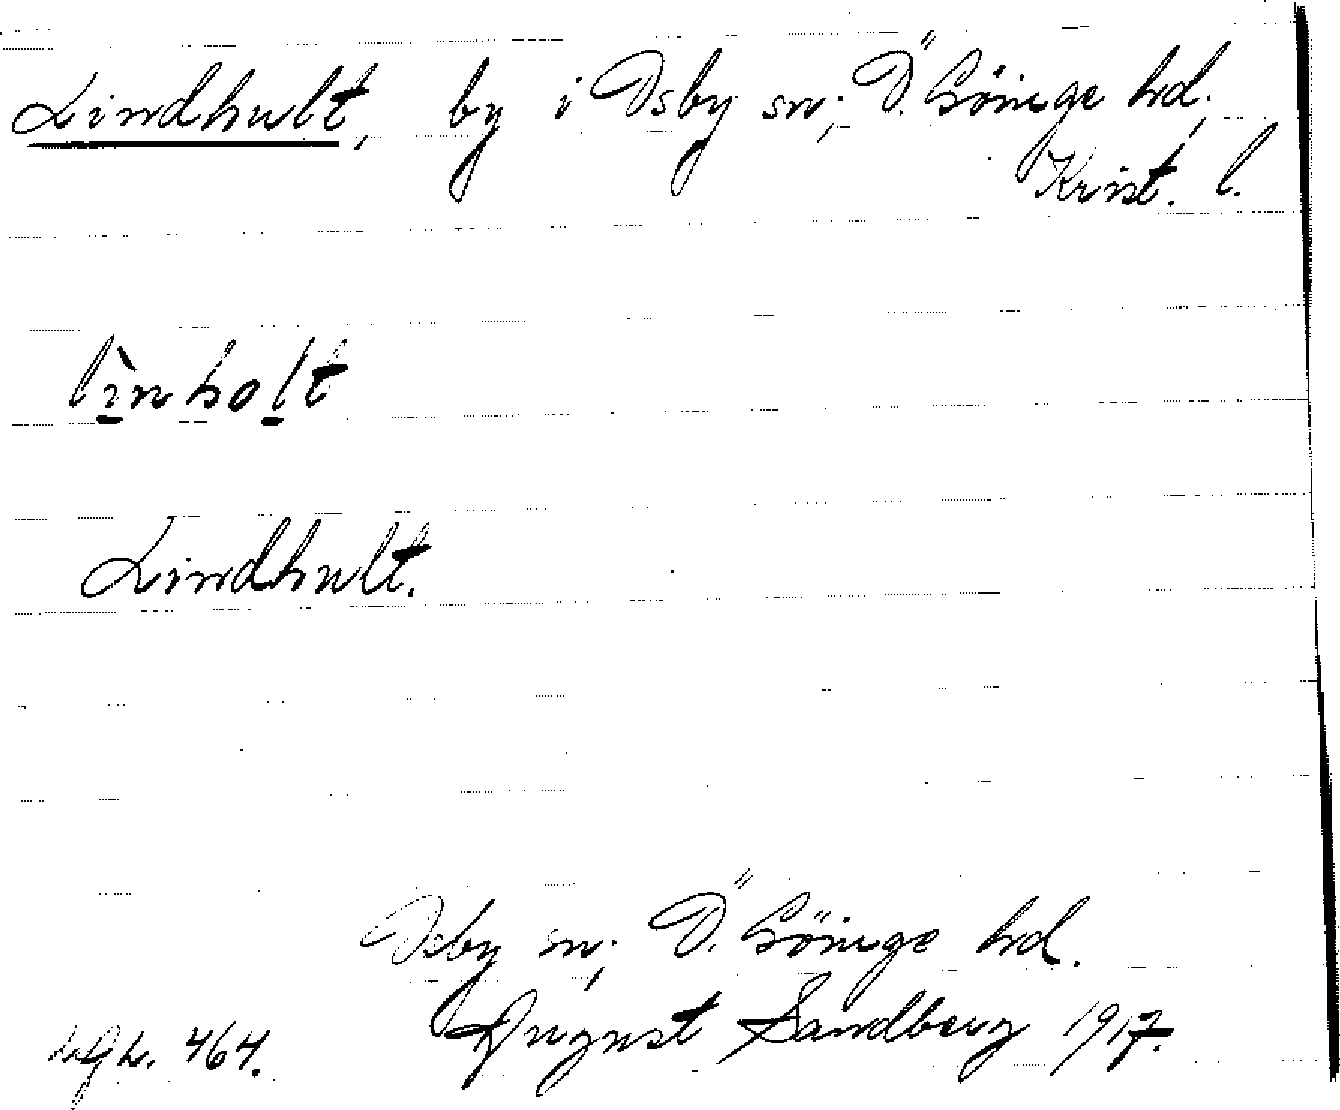 Lindhult, by i Osby sn; Ö. Göinge hd.
Krist. l.
lìnholt
Lindhult.
Osby sn; Ö. Göinge hd.
August Sandberg 1917.
464.